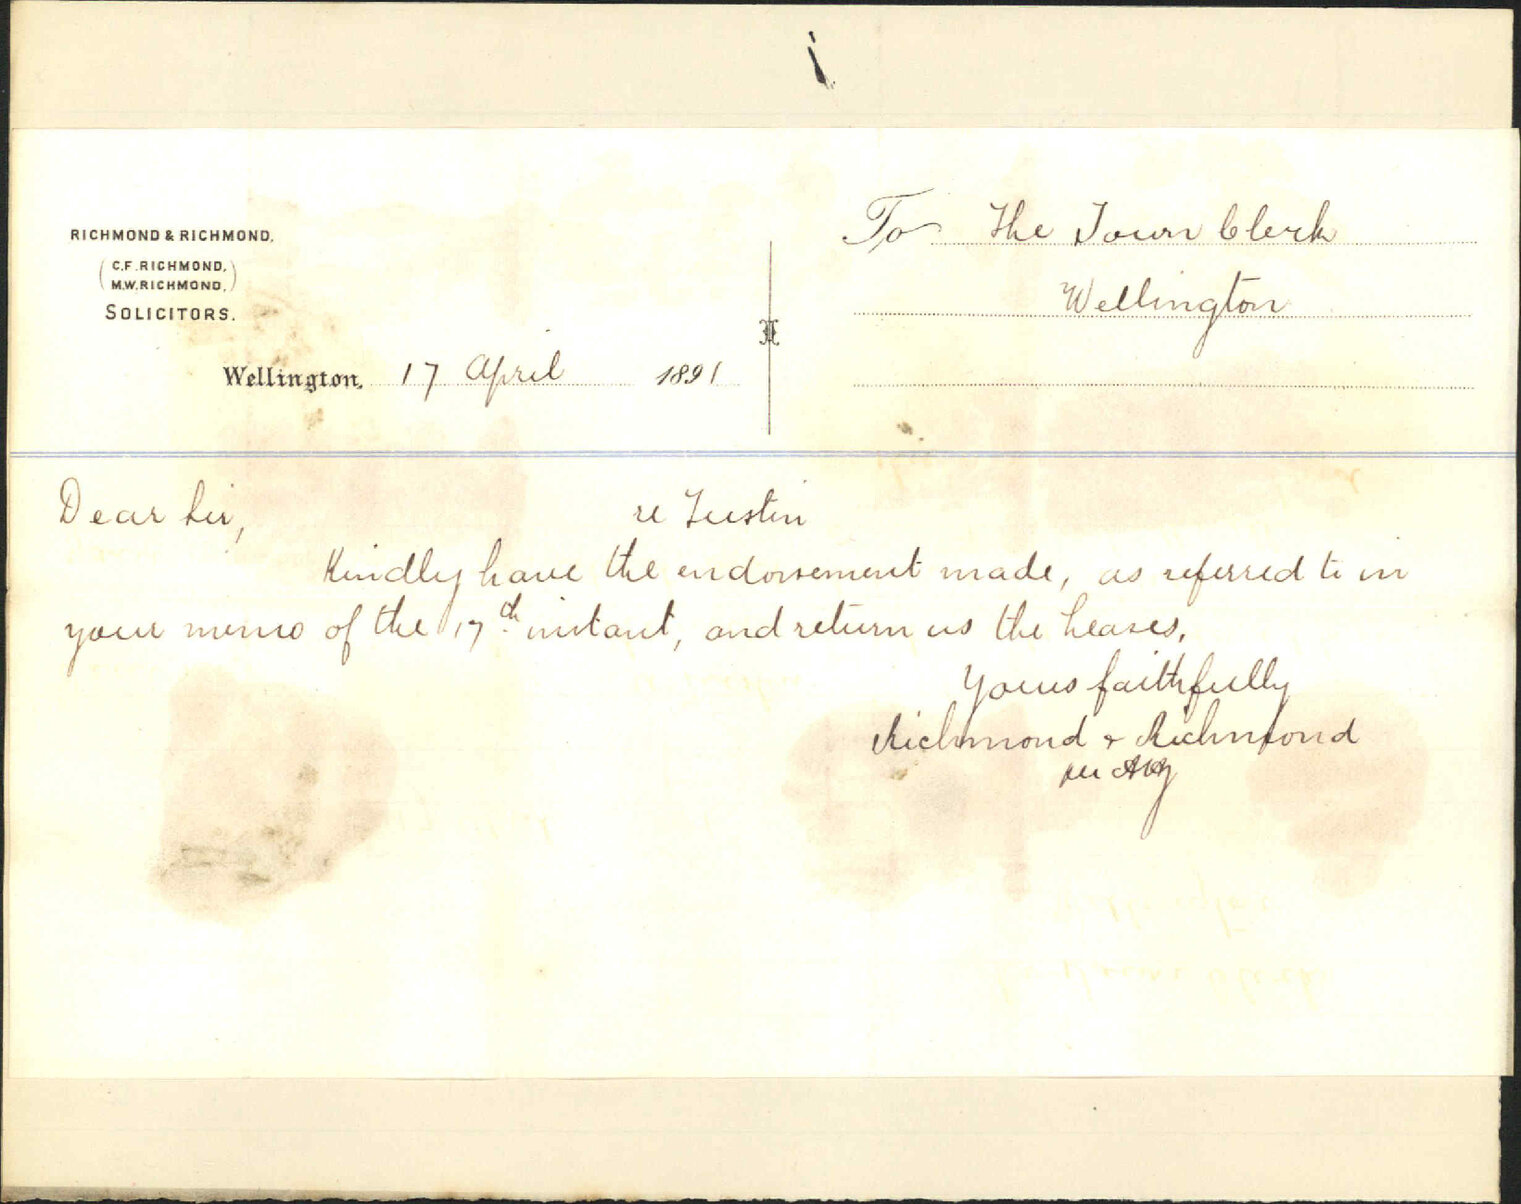 RICHMOND & RICHMOND,
C.F. RICHMOND,
M.W. RICHMOND,
SOLICITORS.
Wellington, 17 April 1891
To The Town Clerk
Wellington
Dear Sir,
re Tustin
Kindly have the endorsement made, as referred to in
your memo of the 17th instant, and return us the leases.
Yours faithfully
Richmond & Richmond
per